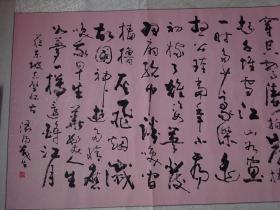 起千堆雪江山如画
一时多少豪杰遥
想公瑾当年小乔
初嫁了雄姿英发
羽扇纶巾谈笑间
樯橹灰飞烟灭
故国神游多情应
笑我早生华发人生
如梦一樽还酹江月
苏东坡赤壁怀古